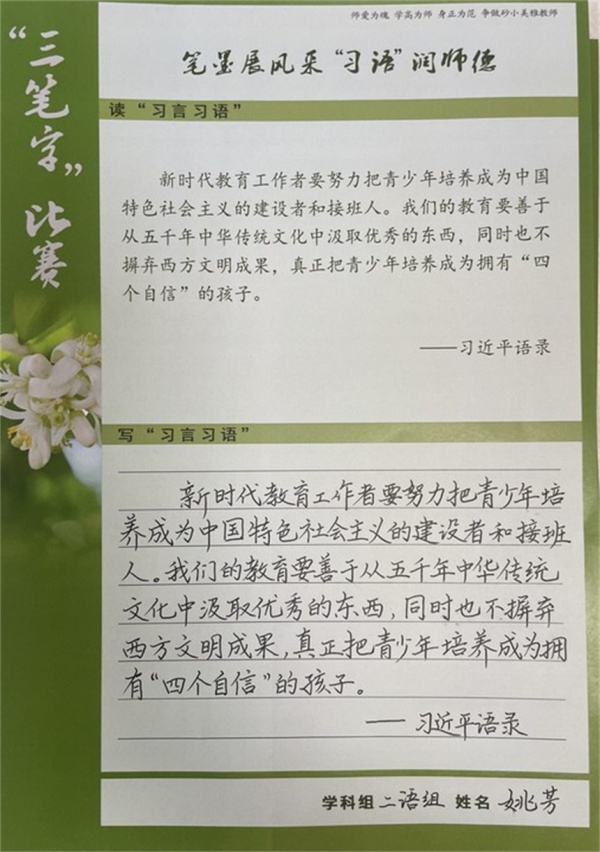 师爱为魂 学高为师 身正为范 争做砂小美雅教师
“三笔字”比赛
笔墨展风采“习语”润师德
读“习言习语”
新时代教育工作者要努力把青少年培养成为中国
特色社会主义的建设者和接班人。我们的教育要善于
从五千年中华传统文化中汲取优秀的东西，同时也不
摒弃西方文明成果，真正把青少年培养成为拥有“四
个自信”的孩子。
——习近平语录
写“习言习语”
新时代教育工作者要努力把青少年培
养成为中国特色社会主义的建设者和接班
人。我们的教育要善于从五千年中华传统
文化中汲取优秀的东西，同时也不摒弃
西方文明成果，真正把青少年培养成为拥
有“四个自信”的孩子。
——习近平语录
学科组 二语组 姓名 姚芳